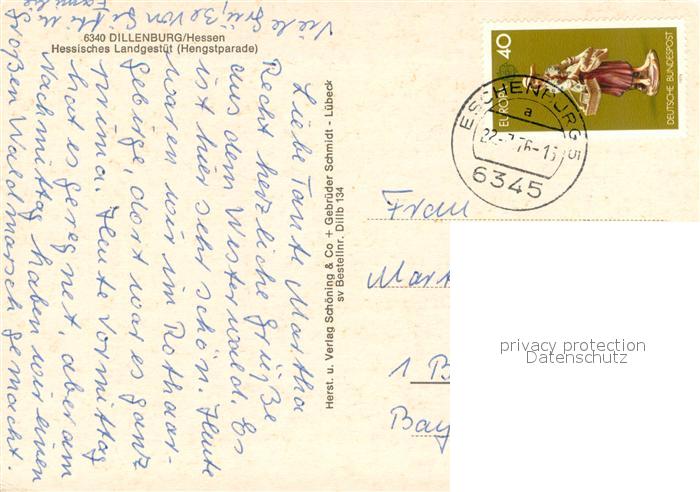 6340 DILLENBURG/Hessen
Hessisches Landgestüt (Hengstparade)
Liebe Tante Martha
Recht herzliche Grüße
aus dem Westerwald. Es
ist hier sehr schön. Heute
waren wir im Rothaar-
gebirge, dort war es ganz
prima. Heute Vormittag
hat es geregnet, aber am
Nachmittag haben wir einen
großen Waldmarsch gemacht.
Viele Grüße von
Familie
Herst. u. Verlag Schöning & Co + Gebrüder Schmidt - Lübeck
sv Bestellnr. Dillb 134
EUROPA
40
DEUTSCHE BUNDESPOST
ESCHENBURG 5
a
6345
Frau
Mart
1 B
Bay
privacy protection
Datenschutz